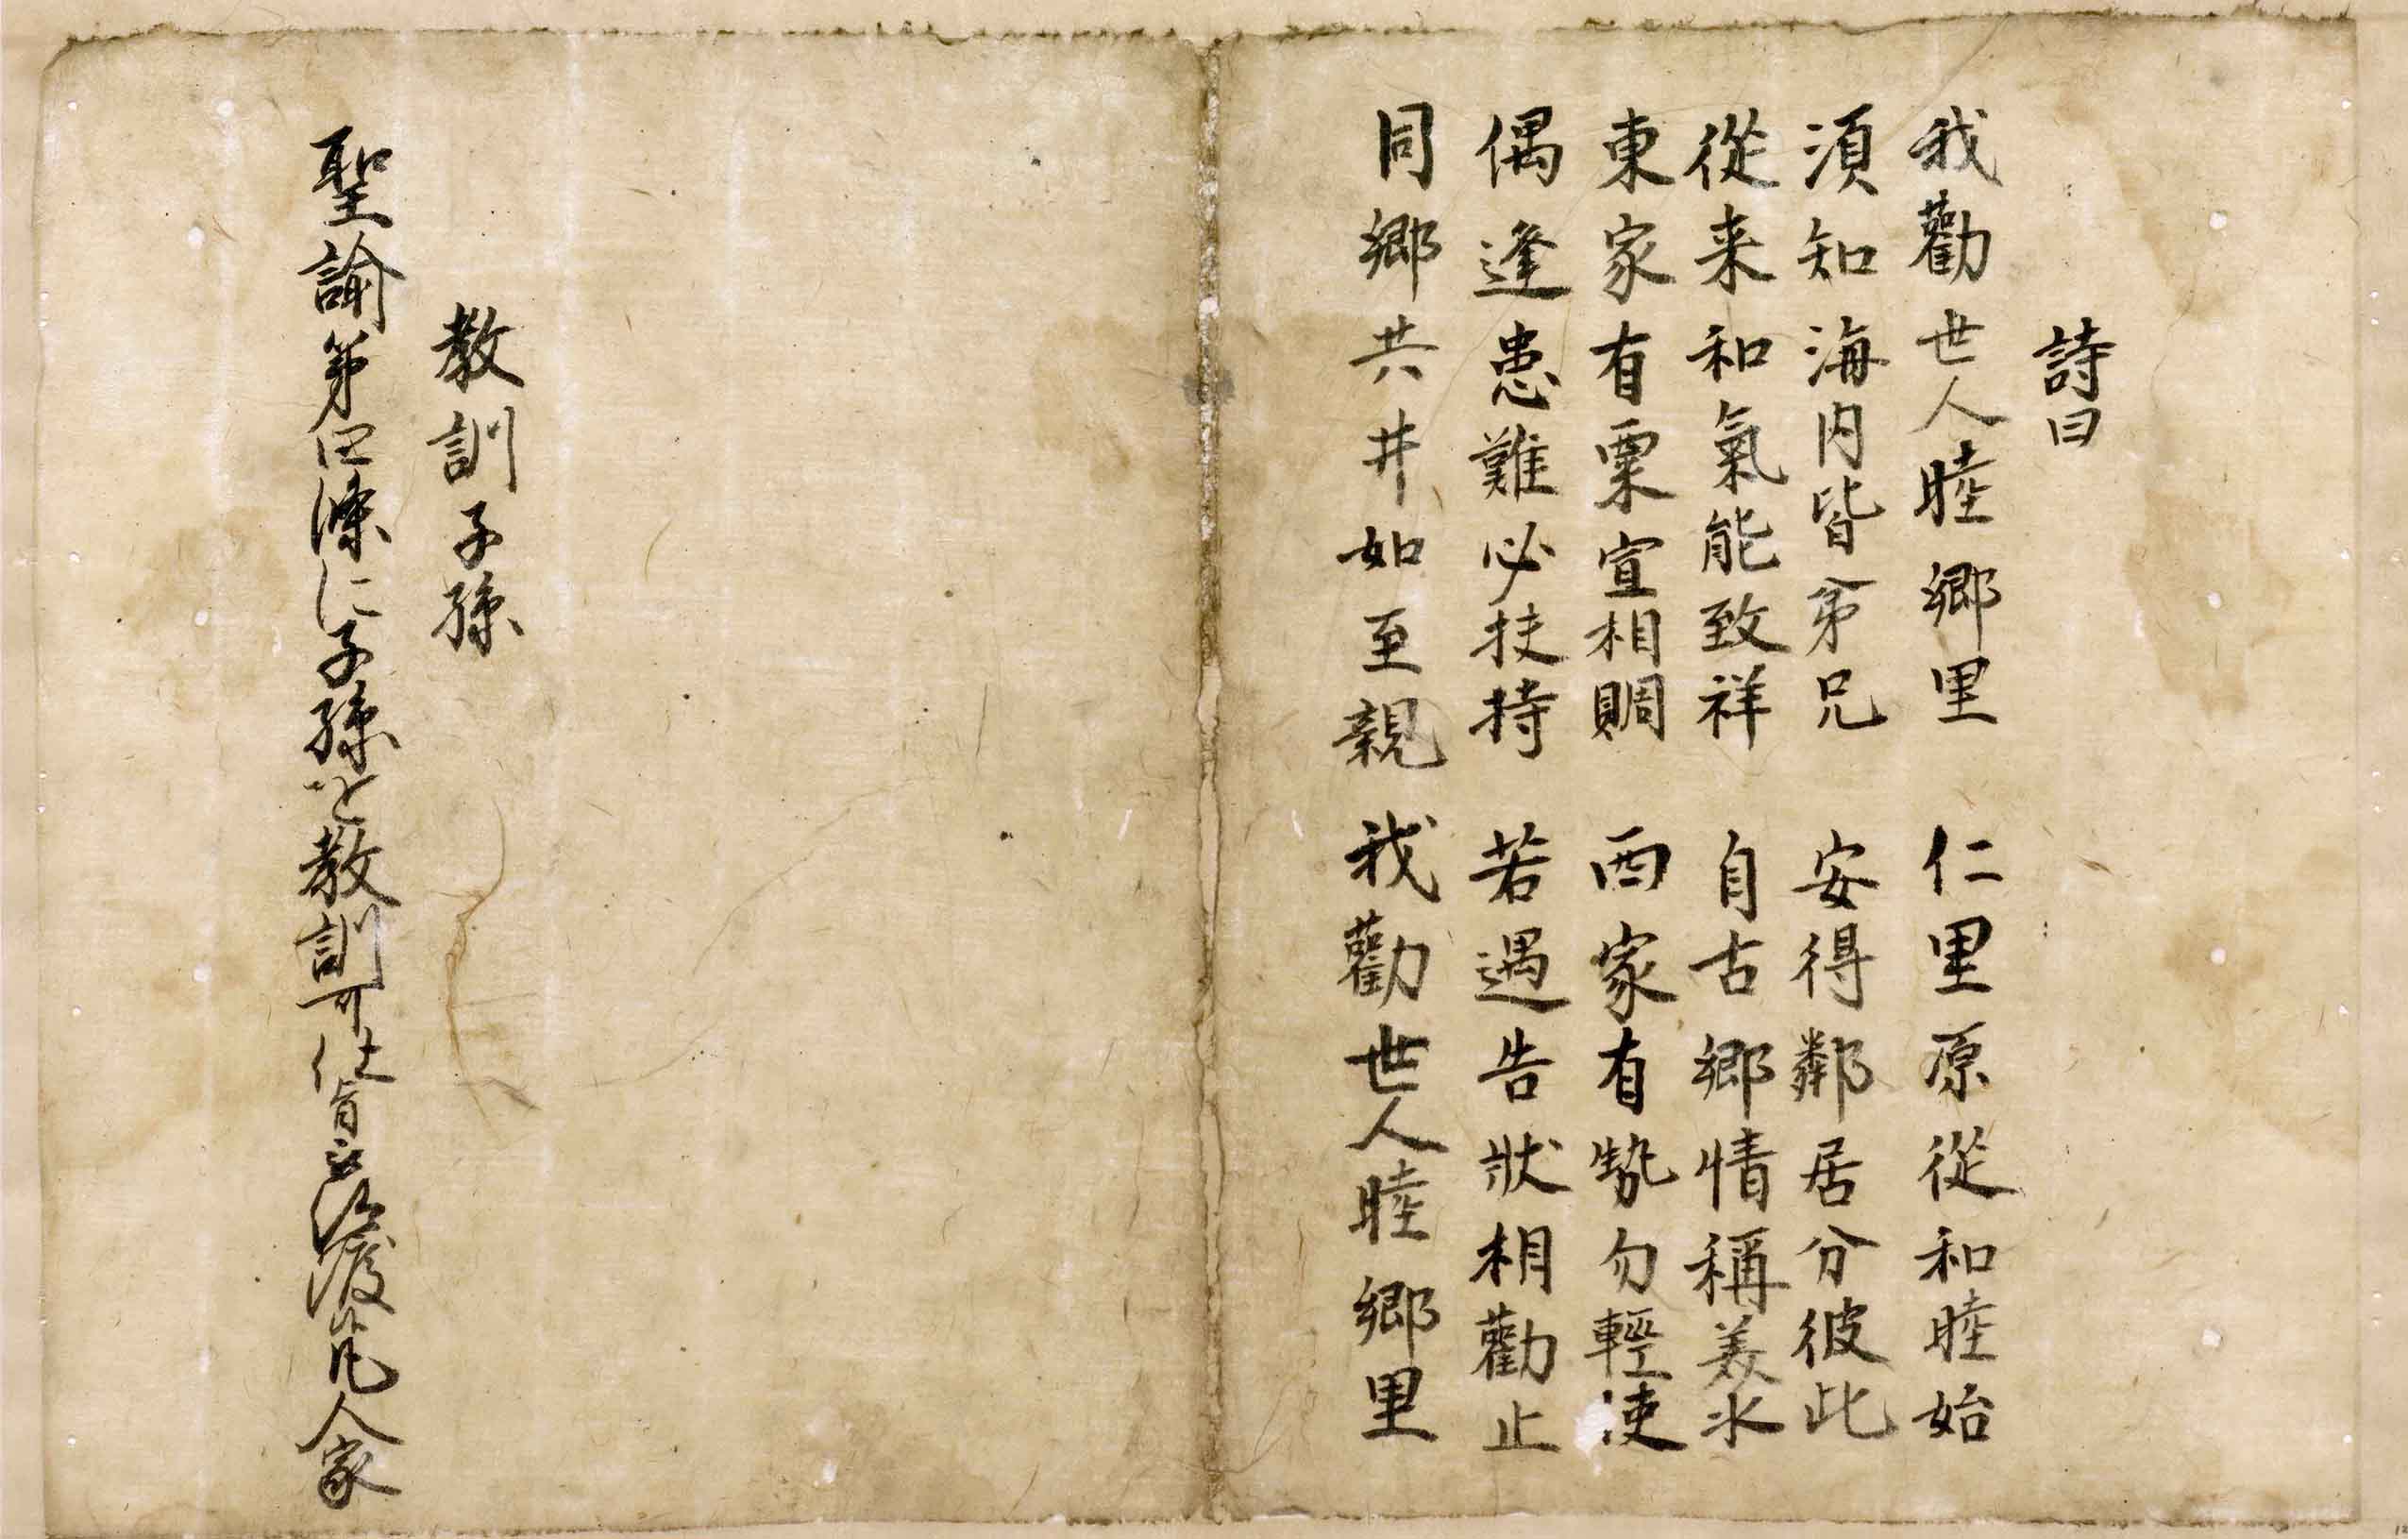 詩曰
我勸世人睦鄉里 仁里原從和睦始
須知海内皆弟兄 安得鄰居分彼此
從来和氣能致祥 自古鄉情稱美水
東家有粟宜相賙 西家有勢勿輕使
偶逢患難必扶持 若遇告狀相勸止
同鄉共井如至親 我勸世人睦鄉里
教訓子孫
聖諭第四條に子孫を教訓可仕旨被 渡候凡人家